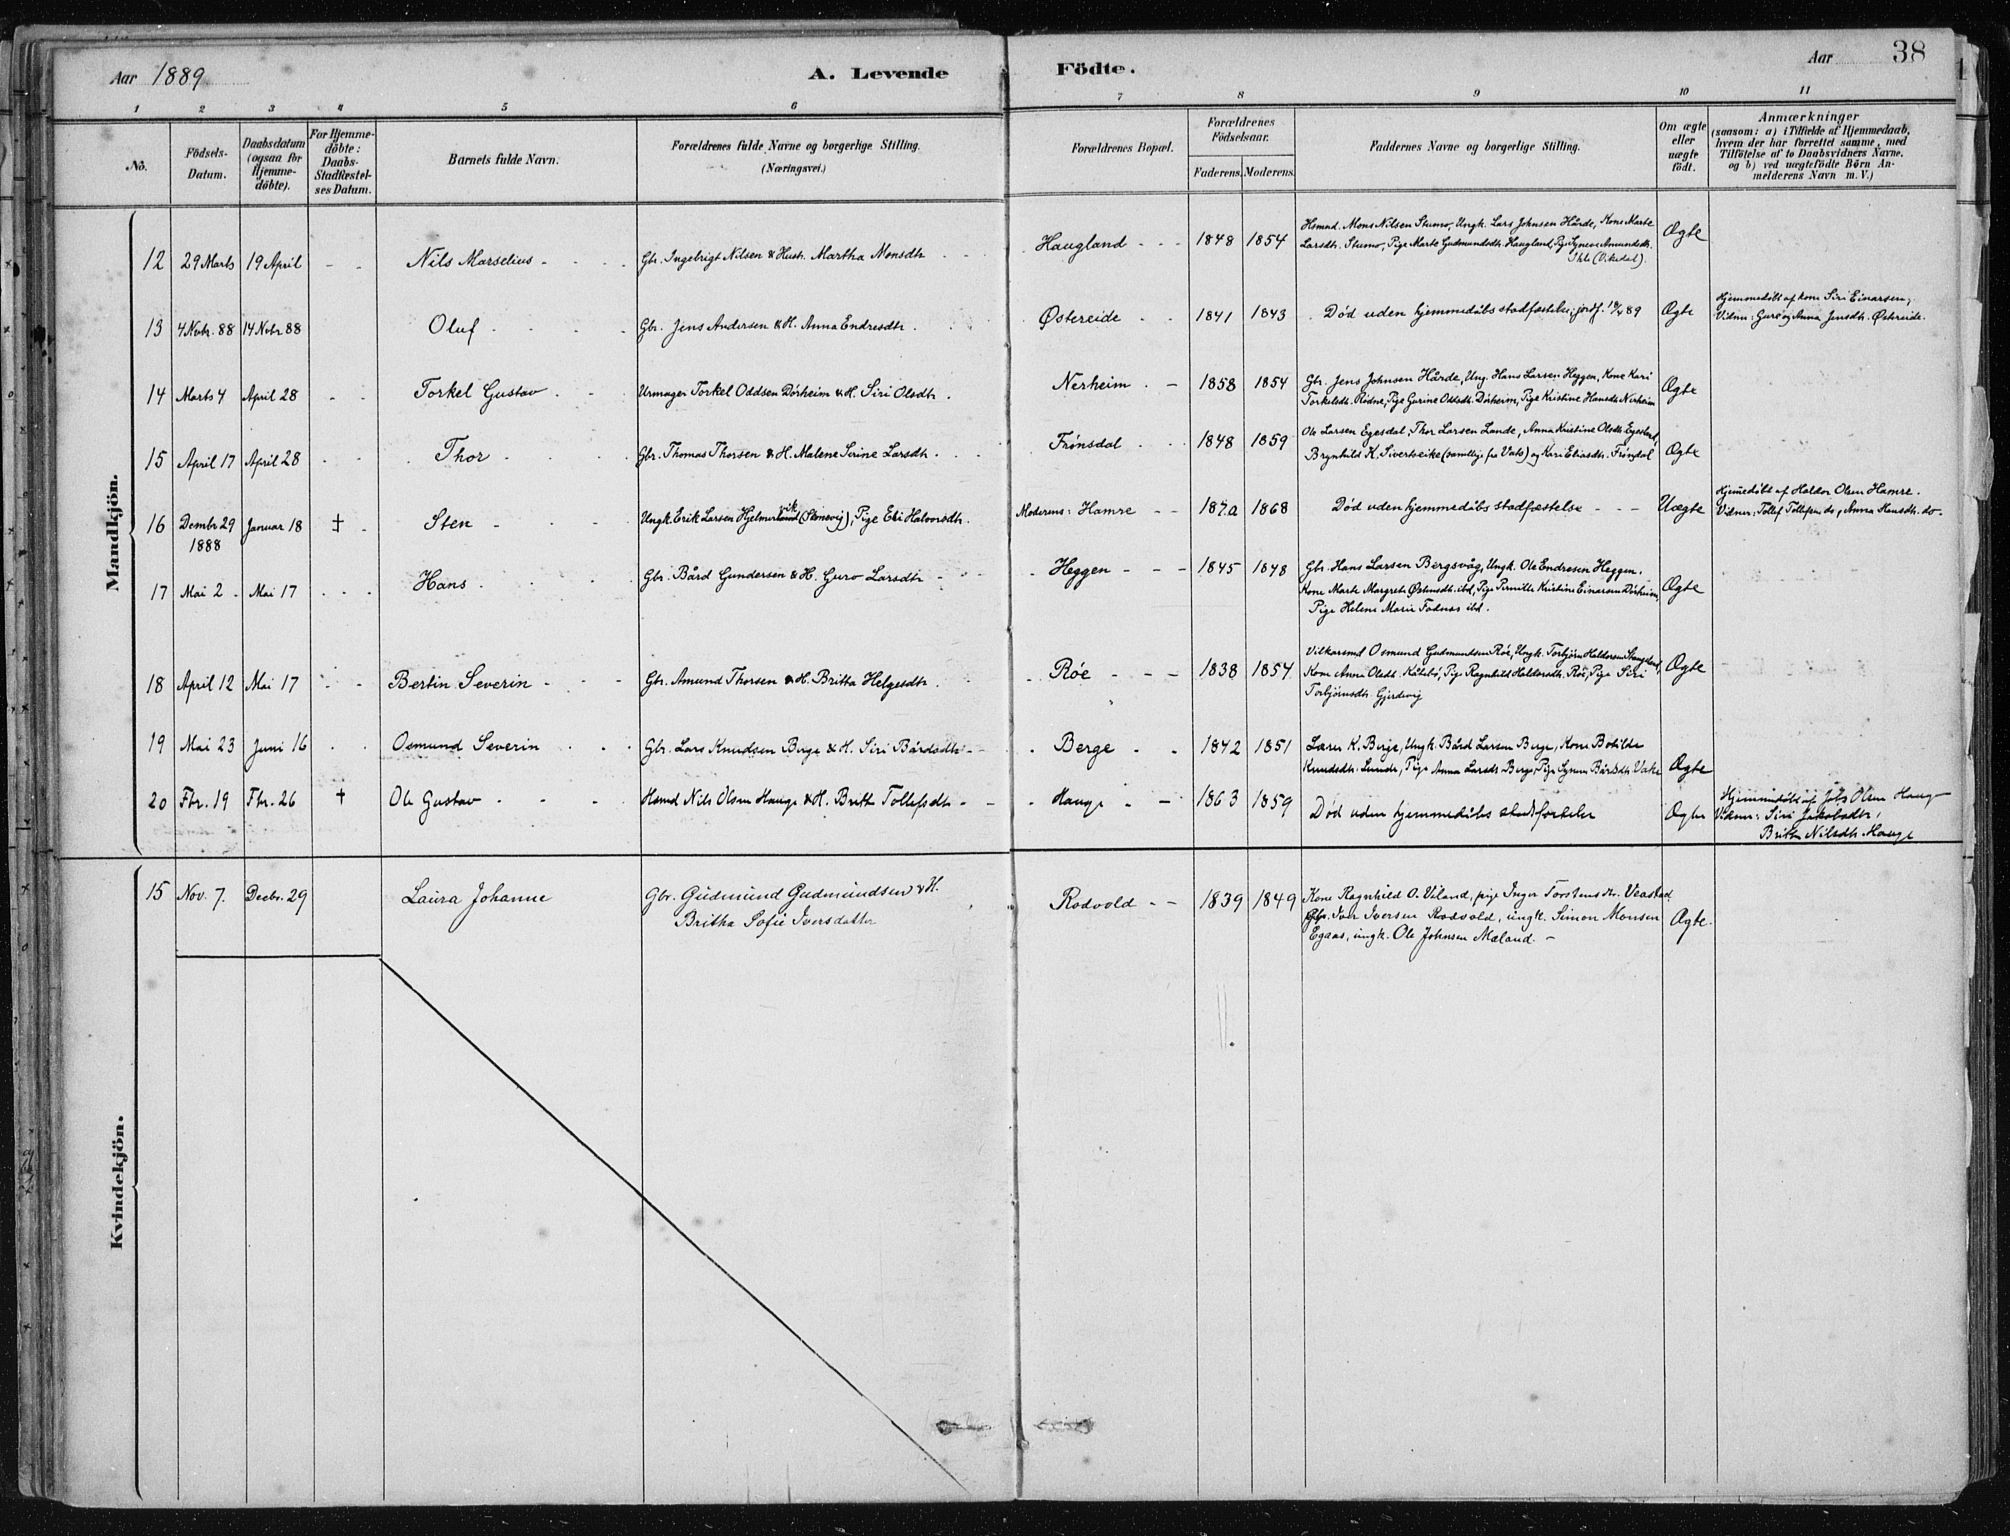 Aar 1889
A. Levende Födte.
Aar
38
1 2 3 4 5 6 7 8 9 10 11
No.
Födsels-Datum.
Daabsdatum (ogsaa for Hjemmedöbte).
For Hjemmedöbte: Daabs-Stadfæstelses Datum.
Barnets fulde Navn.
Forældrenes fulde Navne og borgerlige Stilling. (Næringsvei.)
Forældrenes Bopæl.
Forældrenes Födselsaar.
Faderens. Moderens.
Faddernes Navne og borgerlige Stilling.
Om ægte eller uægte födt.
Anmærkninger
(saasom: a) i Tilfælde af Hjemmedaab, hvem der har forrettet samme, med Tilföielse af to Daabsvidners Navne, og b) ved uægtefödte Börn Anmelderens Navn m. V.)
Mandkjön.
12 29 Marts 19 April - - Nils Marselius Gbr. Ingebrigt Nilsen & Hustr. Martha Monsdtr Haugland 1848 1854 Husmd. Mons Nilsen Stumo, Ungk. Lars Johnsen Hårde, Kone Marte Ægte
Larsdtr. Stumo, Pige Marte Gudmundsdtr. Haugland, Pige Synnve Amundsdtr.
(Vikedal).
13 4 Novbr. 88 14 Novbr 88 Oluf Gbr. Jens Andersen & H. Anna Endresdtr. Østereide 1841 1843 Død uden hjemmedåbs stadfæstelse; jordf. 89 Ægte Hjemmedøbt af kone Siri Einarsen,
Vidner: Guro og Anna Jensdtr. Østereide.
14 Marts 4 April 28 Torkel Gustav Urmager Torkel Oddsen Dörheim & H. Siri Olsdtr. Nerheim 1858 1854 Gbr. Jens Johnsen Hårde, Ung. Hans Larsen Heggen, Kone Kari Ægte
Torkelsdtr. Rødne, Pige Gurine Oddsdtr. Dörheim, Pige Kristine Hansdtr Nerheim
15 April 17 April 28 Thor Gbr. Thomas Thorsen & H. Malene Serine Larsdtr. Frönsdal 1848 1859 Ole Larsen Egesdal, Thor Larsen Lande, Anna Kristine Olsdtr. Ægte
Brynhild K. Sivertseike (samtlige fra Vats) og Kari Eliasdtr. Fröndal
16 Decembr 29 1888 Januar 18 † Sten Ungk. Erik Larsen Hjelmervik (Stensvig), Pige Eli Halvorsdtr. Moderens: Hamre 1868 Død uden hjemmedåbs stadfæstelse Uægte Hjemmedøbt af Haldor Olsen Hamre.
Vidner: Tollef Tollefsen do, Anna Hansdtr. do.
17 Mai 2 Mai 17 Hans Gbr. Bård Gundersen & H. Guro Larsdtr Heggen 1845 1848 Gbr. Hans Larsen Bergsvåg, Ungk. Ole Endresen Heggen. Ægte
Kone Marte Margrete Østensdtr. ibd, Pige Pernille Kristine Einarsen Dörheim,
Pige Helene Marie Fadnas ibd.
18 April 12 Mai 17 Bertin Severin Gbr. Amund Thorsen & H. Britha Helgesdtr. Røe 1838 1854 Vilkarsmd Osmund Gudmundsen Røe, Ungk. Torbjørn Haldorsen Ægte
Kone Anna Olsdtr. Kåtebø, Pige Ragnhild Haldorsdtr. Røe, Pige Siri
Torbjørnsdtr. Gjerdevig
19 Mai 23 Juni 16 Osmund Severin Gbr. Lars Knudsen Berge & H. Siri Bårdsdtr Berge 1842 1851 Lærer K. Berge, Ungk. Bård Larsen Berge, Kone Botilde
Knudsdtr. Lunde, Pige Anna Larsdtr Berge, Pige Synnve Bårdsdtr. Vake Ægte
20 Fbr. 19 Fbr. 26 † Ole Gustav Hsmd Nils Olsen Hauge & H. Britt Tollefsdtr Hauge 1863 1859 Død uden hjemmedåbs stadfæstelse Ægte Hjemmedøbt af Olsen Hauge
Vidner: Siri Jakobsdtr,
Britta Nilsdtr. Hauge
Kvindekjön.
15 Nov. 7. Decbr. 29 Laura Johanne Gbr. Gudmund Gudmundsen & H. Rodvold 1839 1849 Kone Ragnhild O. Viland, pige Inger Torstensdtr. Veastad Ægte.
Britha Sofie Iversdatter Gbr. Iver Iversen Rodvold, ungk. Simon Monsen
Egaas, ungk. Ole Johnsen Mæland.